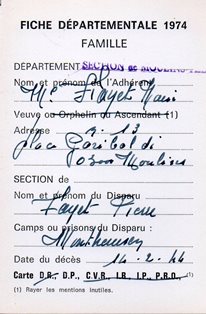 FICHE DÉPARTEMENTALE 1974
FAMILLE
DÉPARTEMENT SECTION de MOULINS
Nom et prénom de l'Adhérent
Mme Fayet
Veuve ou Orphelin ou Ascendant (1)
Adresse 9-13
place Garibaldi
Moulins
SECTION de
Nom et prénom du Disparu
Fayet Pierre
Camps ou prisons du Disparu :
Mauthausen
Date du décès 14-2-44
Carte D.R., D.P., C.V.R., I.R., I.P., P.R.O., (1)
(1) Rayer les mentions inutiles.